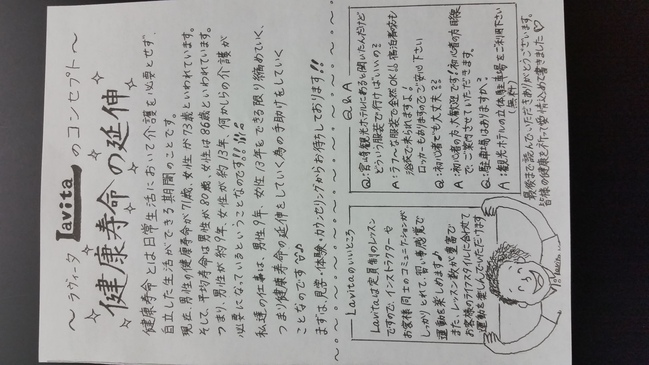 ～ラヴィータ Lavita のコンセプト～
健康寿命の延伸
健康寿命とは日常生活において介護を必要とせず、
自立した生活ができる期間のことです。
現在、男性の健康寿命が71歳、女性が73歳といわれています。
そして、平均寿命は男性が80歳、女性は86歳といわれています。
つまり、男性が約9年、女性が約13年、何かしらの介護が
必要になっているということなのです!!
私達の仕事は、男性9年、女性13年をできる限り縮めていく、
つまり健康寿命の延伸をしていく為の手助けをしていく
ことなのです♪
まずは、見学・体験・カウンセリングからお待ちしております!!
Lavitaのいいところ
Lavitaは定員制のレッスン
ですので、インストラクターや
お客様同士のコミュニケーションが
しっかりとれて、習い事感覚で
運動を楽しめます♪
また、レッスン数が豊富で
お客様のライフスタイルに合わせて
運動を楽しんでいただけます
Lavita
Q&A
Q:宮崎観光ホテルにあると聞いたんだけど
どういう服装で行けばいいの?
A:ラフ～な服装で全然OK!!宿泊者様も
浴衣で来られますよ!
ロッカーもありますのでご安心下さい
Q:初心者でも大丈夫??
A:初心者の方、大歓迎です!初心者の方目線
で、ご案内させていただきます。
Q:駐車場はありますか?
A:観光ホテルの立体駐車場をご利用下さい
(無料)
最後まで読んでいただきありがとうございます。
皆様の健康を祈って愛情込めて書きました♡